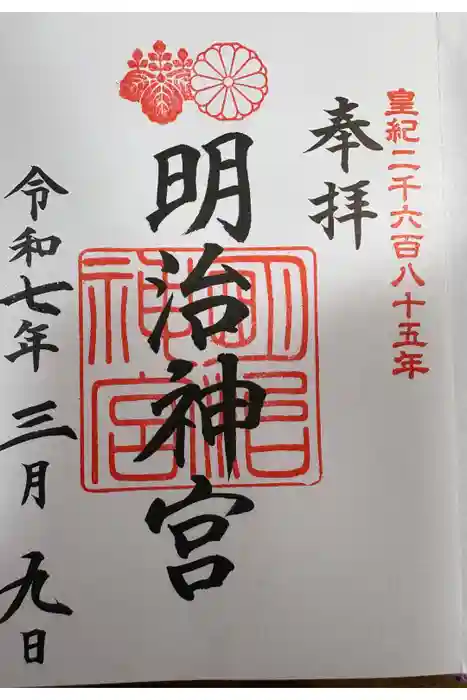 皇紀二千六百八十五年
奉拝
明治神宮
明治
神宮
令和七年三月九日